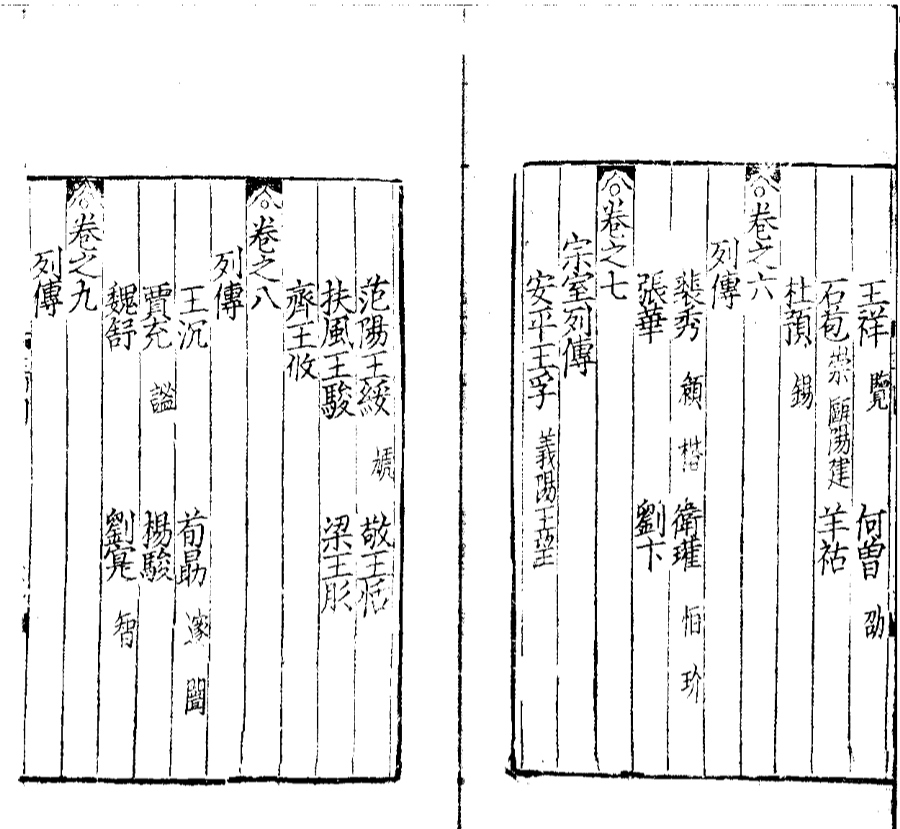 王祥 覽 何曾 劭
石苞 崇 歐陽建 羊祜
杜預 錫
卷之六
列傳
裴秀 頠 楷 衛瓘 恒 玠
張華 劉卞
卷之七
宗室列傳
安平王孚 義陽王望
范陽王綏 虓 敬王恬
扶風王駿 梁王肜
齊王攸
卷之八
列傳
王沉 荀勗 邃 闓
賈充 謐 楊駿
魏舒 劉寔 智
卷之九
列傳